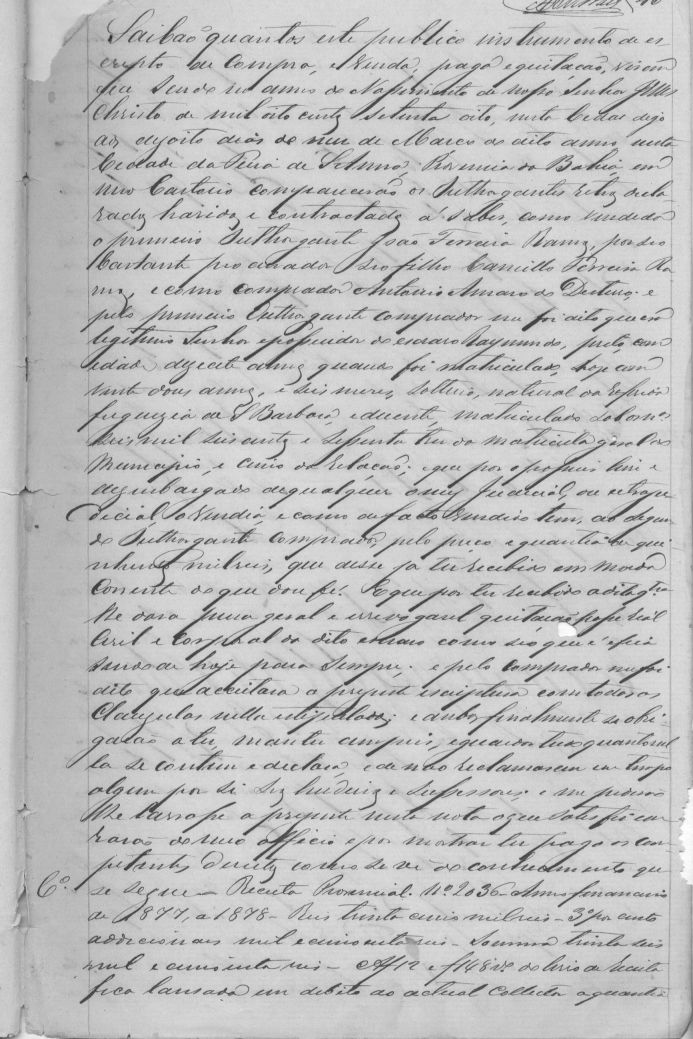 Saibão quantos este publico instrumento de es
cripto de Compra, e Venda, paga e quitação, virem
que sendo no anno do Nascimento de Nosso Senhor Jesus
Christo de mil oito centos setenta oito, nesta Cidade digo
aos dezoito dias do mez de Março do dito anno, nesta
Cidade da Feira de Sta Anna, Provincia da Bahia em
meu Cartorio comparecerão os Outhorgantes
havidos e contractados a saber, como vendedor
o primeiro Outhorgante João Ferreira Ramos, por seo
bastante procurador seo filho Camillo Ferreira Ra
mos, e como comprador Antonio Amaro do Desterro e
pelo primeiro Outhorgante comprador me foi dito que é
legitimo Senhor e possuidor do escravo Raymundo, preto, com
idade dezesete annos quando foi matriculado, hoje com
vinte dous annos, e seis mezes, solteiro, natural da
freguezia de S Barbara, e doente, matriculado sob o no
seis mil seis centos e sessenta trez da matricula geral do
Municipio, e cinco da relação: e que por o possuir livre e
dezembargado de qualquer onus Judicial, ou extraju
dicial o vendia, e como de facto vendido tem, ao segun
do Outhorgante comprador, pelo preço e quantia de qui
nhentos mil reis, que desse já ter recebido em moeda
corrente do que dou fé. E que por ter recebido a dita qtia
lhe dava plena geral e irrevogavel quitação posse Real
Civil e Corporal do dito escravo como seo que é e fica
sendo de hoje para sempre: e pelo comprador me foi
dito que acceitava a presente escriptura com todas as
Clauzulas nella estipuladas; e ambos finalmente se obri
garão a ter manter cumprir, e guardar tudo quanto nel
la se contem e declara, e de não reclamarem em tempo
algum por si seos herdeiros e sucessores; e me pedirão
lhe lavrasse a presente nesta nota o que satisfiz em
razão do meo officio e por mostrar ter pago os com
petentes direitos como se vê do conhecimento que
Co. se segue — Receita Provincial. No 2036 Anno financeiro
de 1877, a 1878 — Reis trinta cinco mil reis — 3o por cento
addicionaes mil e cincoenta reis — Somma trinta seis
mil e cincoenta reis — A f 12 e f 148 do livro da Receita
fica lançada em debito ao actual Collector a quantia